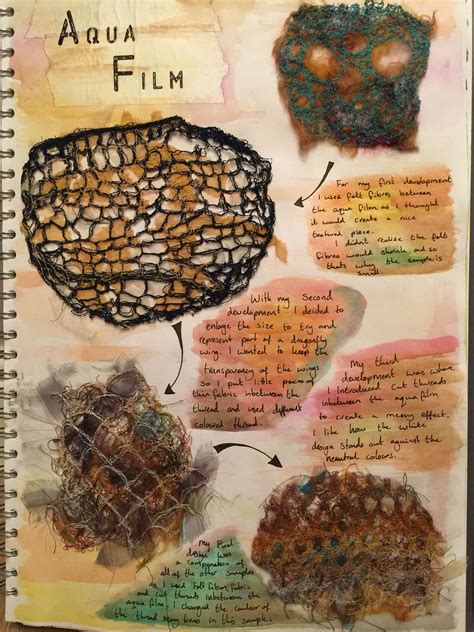 AQUA
FILM
For my first development
I used felt fibres between
the aqua film as I thought
it would create a nice
textured piece.
I didn't realise the felt
fibres would shrink and so
thats why the sample is
small.
With my Second
development I decided to
enlarge the size to try and
represent part of a dragonfly
wing. I wanted to keep the
transparency of the wings
so I put little pieces of
thin fabric inbetween the
thread and used different
coloured thread.
My third
development was where
I introduced cut threads
inbetween the aqua film
to create a messy effect.
I like how the white
design stands out against the
neutral colours.
My final
design was
a combination of
all of the other samples
as I used felt fibres, fabric
and cut threads inbetween the
aqua film. I changed the colour of
the thread many times in this sample.